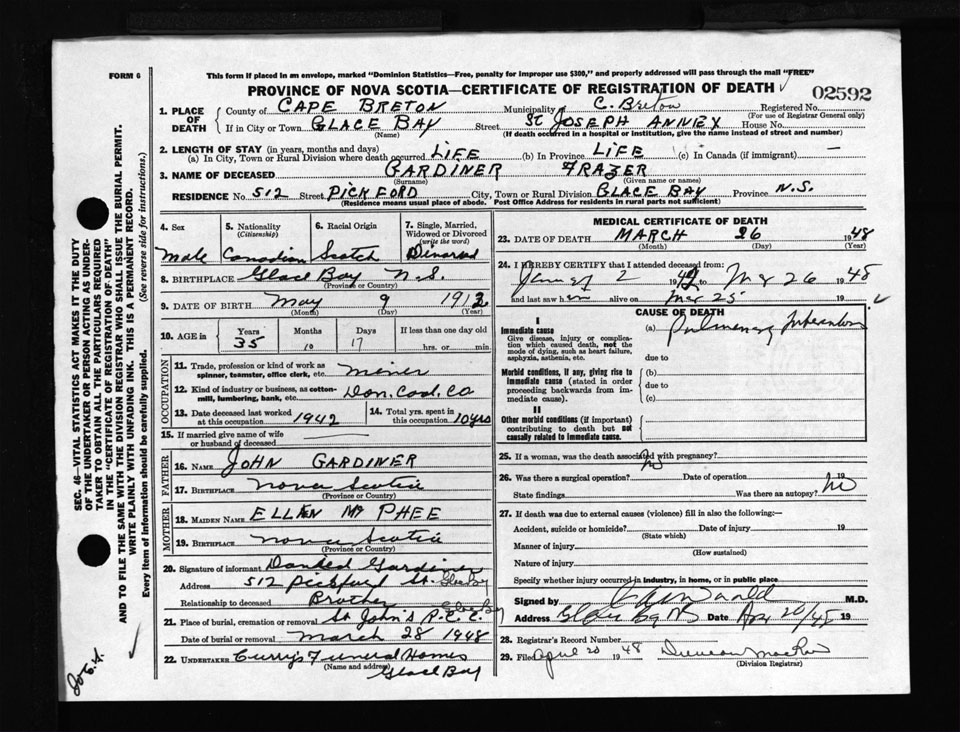 FORM 6
This form if placed in an envelope, marked "Dominion Statistics—Free, penalty for improper use $300," and properly addressed will pass through the mail "FREE"
PROVINCE OF NOVA SCOTIA—CERTIFICATE OF REGISTRATION OF DEATH
02592
1. PLACE OF DEATH
County of CAPE BRETON Municipality of C. Breton Registered No.
(For use of Registrar General only)
If in City or Town GLACE BAY Street St JOSEPH ANNEX House No.
(Name) (If death occurred in a hospital or institution, give the name instead of street and number)
2. LENGTH OF STAY (in years, months and days)
(a) In City, Town or Rural Division where death occurred LIFE (b) In Province LIFE (c) In Canada (if immigrant) —
3. NAME OF DECEASED GARDINER FRAZER
(Surname) (Given name or names)
RESIDENCE No. 512 Street PICKFORD City, Town or Rural Division GLACE BAY Province N.S.
(Residence means usual place of abode. Post Office Address for residents in rural parts not sufficient)
4. Sex
Male
5. Nationality (Citizenship)
Canadian
6. Racial Origin
Scotch
7. Single, Married, Widowed or Divorced (write the word)
Divorced
8. BIRTHPLACE Glace Bay N.S.
(Province or Country)
9. DATE OF BIRTH May 9 1912
(Month) (Day) (Year)
10. AGE in
Years Months Days If less than one day old
35 10 17 hrs. or min.
OCCUPATION
11. Trade, profession or kind of work as spinner, teamster, office clerk, etc. Miner
12. Kind of industry or business, as cotton-mill, lumbering, bank, etc. Dom. Coal. Co
13. Date deceased last worked at this occupation 1942
14. Total yrs. spent in this occupation 10 yrs
15. If married give name of wife or husband of deceased
FATHER
16. NAME JOHN GARDINER
17. BIRTHPLACE Nova Scotia
(Province or Country)
MOTHER
18. MAIDEN NAME ELLEN Mc PHEE
19. BIRTHPLACE Nova Scotia
(Province or Country)
20. Signature of informant Gardiner
Address 512 Pickford St. Glace Bay
Relationship to deceased Brother
21. Place of burial, cremation or removal St John's Glace Bay
Date of burial or removal March 28 1948
22. UNDERTAKER Curry's Funeral Homes
(Name and address)
Glace Bay
MEDICAL CERTIFICATE OF DEATH
23. DATE OF DEATH MARCH 26 1948
(Month) (Day) (Year)
24. I HEREBY CERTIFY that I attended deceased from:
2 19 to Mar 26 1948
and last saw him alive on Mar 25 19
CAUSE OF DEATH
I
Immediate cause
Give disease, injury or complication which caused death, not the mode of dying, such as heart failure, asphyxia, asthenia, etc.
(a) Pulmonary Tuberculosis
due to
Morbid conditions, if any, giving rise to immediate cause (stated in order proceeding backwards from immediate cause).
(b)
due to
(c)
II
Other morbid conditions (if important) contributing to death but not causally related to immediate cause.
25. If a woman, was the death associated with pregnancy?
26. Was there a surgical operation? Date of operation 19
State findings Was there an autopsy? No
27. If death was due to external causes (violence) fill in also the following—
Accident, suicide or homicide? Date of injury 19
(State which)
Manner of injury
(How sustained)
Nature of injury
Specify whether injury occurred in industry, in home, or in public place
Signed by M.D.
Address Glace Bay NS Date Apr 20/48 19
28. Registrar's Record Number
29. Filed April 20 1948 Duncan
(Division Registrar)
SEC. 46—VITAL STATISTICS ACT MAKES IT THE DUTY
OF THE UNDERTAKER OR PERSON ACTING AS UNDERTAKER TO OBTAIN ALL THE PARTICULARS REQUIRED
IN THE "CERTIFICATE OF REGISTRATION OF DEATH"
AND TO FILE THE SAME WITH THE DIVISION REGISTRAR WHO SHALL ISSUE THE BURIAL PERMIT.
WRITE PLAINLY WITH UNFADING INK. THIS IS A PERMANENT RECORD.
Every item of information should be carefully supplied. (See reverse side for instructions.)